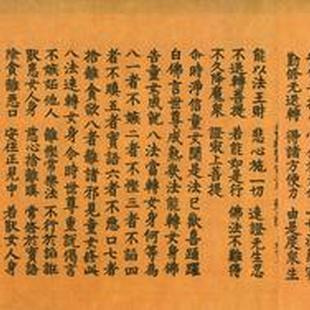 勤修无退轉 得諸方便力 由是度衆生
能以法王財 悲心施一切 速證无生忍
不退轉菩提 若能如是行 佛法不難得
不久降魔衆 證寂上菩提
尒時淨信童女聞是法已歡喜踊躍
白佛言世尊成熟幾法能轉女身佛
告童女成就八法當轉女身何等為
八一者不嫉二者不慳三者不諂四
者不瞋五者實語六者不惡口七者
捨離貪欲八者離諸邪見童女修此
八法速轉女身尒時世尊重說偈言
不嫉妬他人 離慳常樂法 不行於諂誑
猒患女人身 慈心捨離瞋 常修於實語
除貪離惡口 安住正見中 若猒女人身